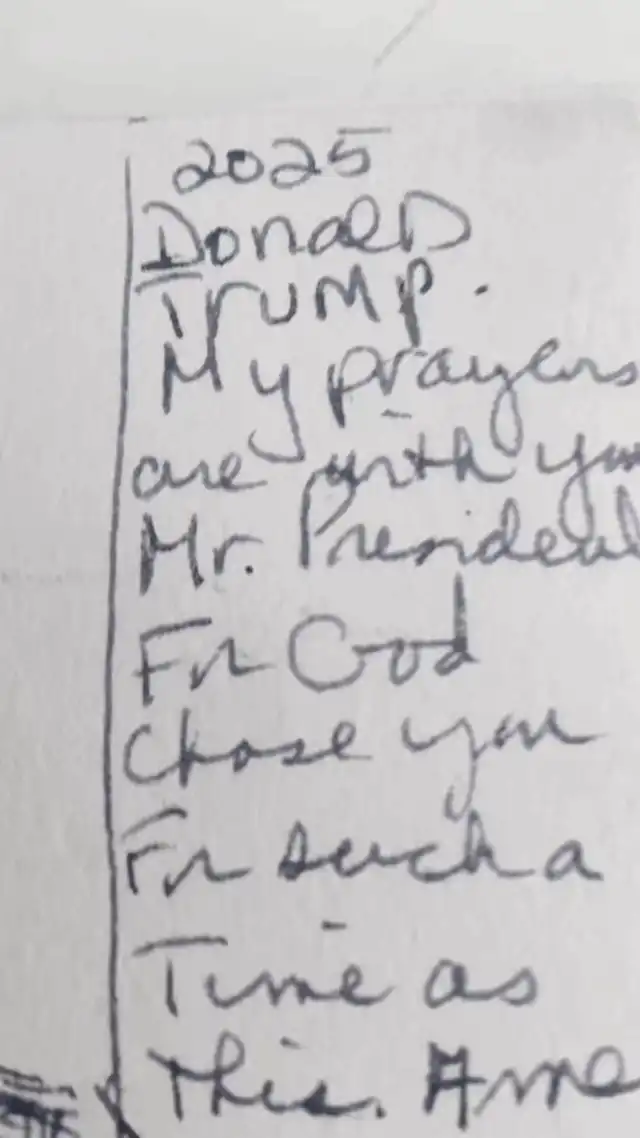 2025
Donald
Trump.
My prayers
are with you
Mr. President
For God
Chose you
For such a
Time as
This. Ame